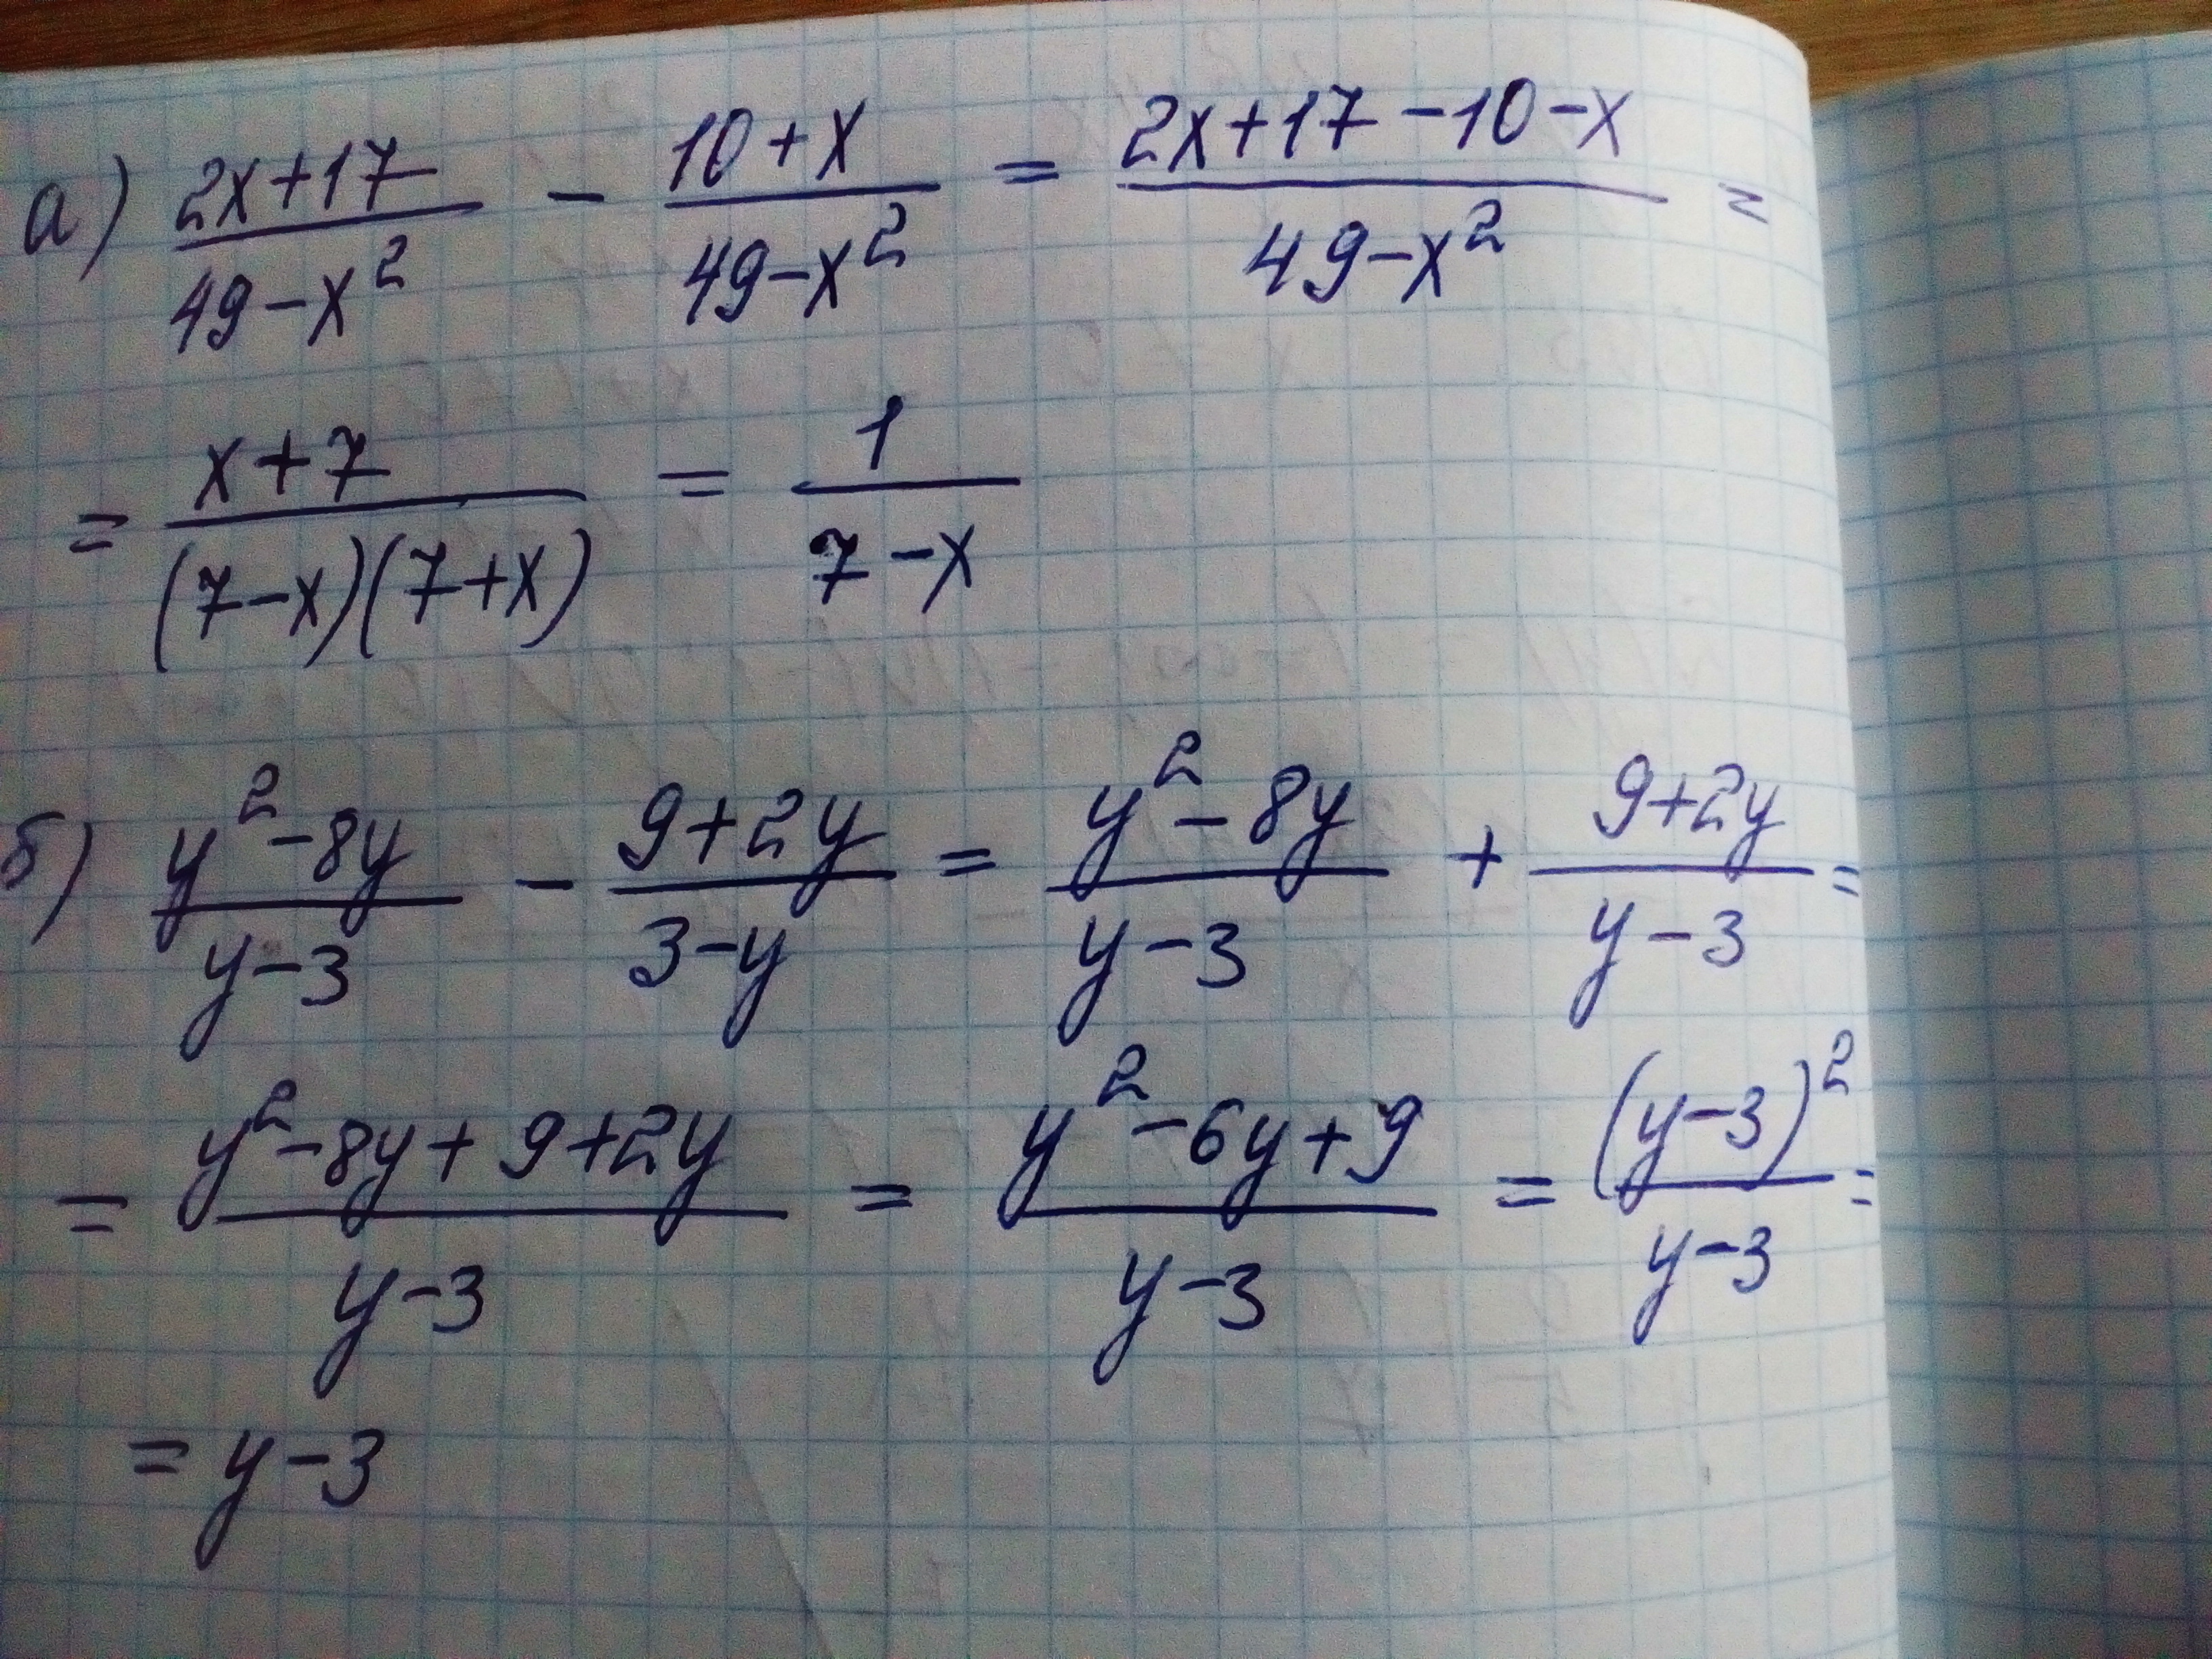 а) (2x+17)/(49-x²) - (10+x)/(49-x²) = (2x+17-10-x)/(49-x²) =
= (x+7)/((7-x)(7+x)) = 1/(7-x)
б) (y²-8y)/(y-3) - (9+2y)/(3-y) = (y²-8y)/(y-3) + (9+2y)/(y-3) =
= (y²-8y+9+2y)/(y-3) = (y²-6y+9)/(y-3) = (y-3)²/(y-3) =
= y-3